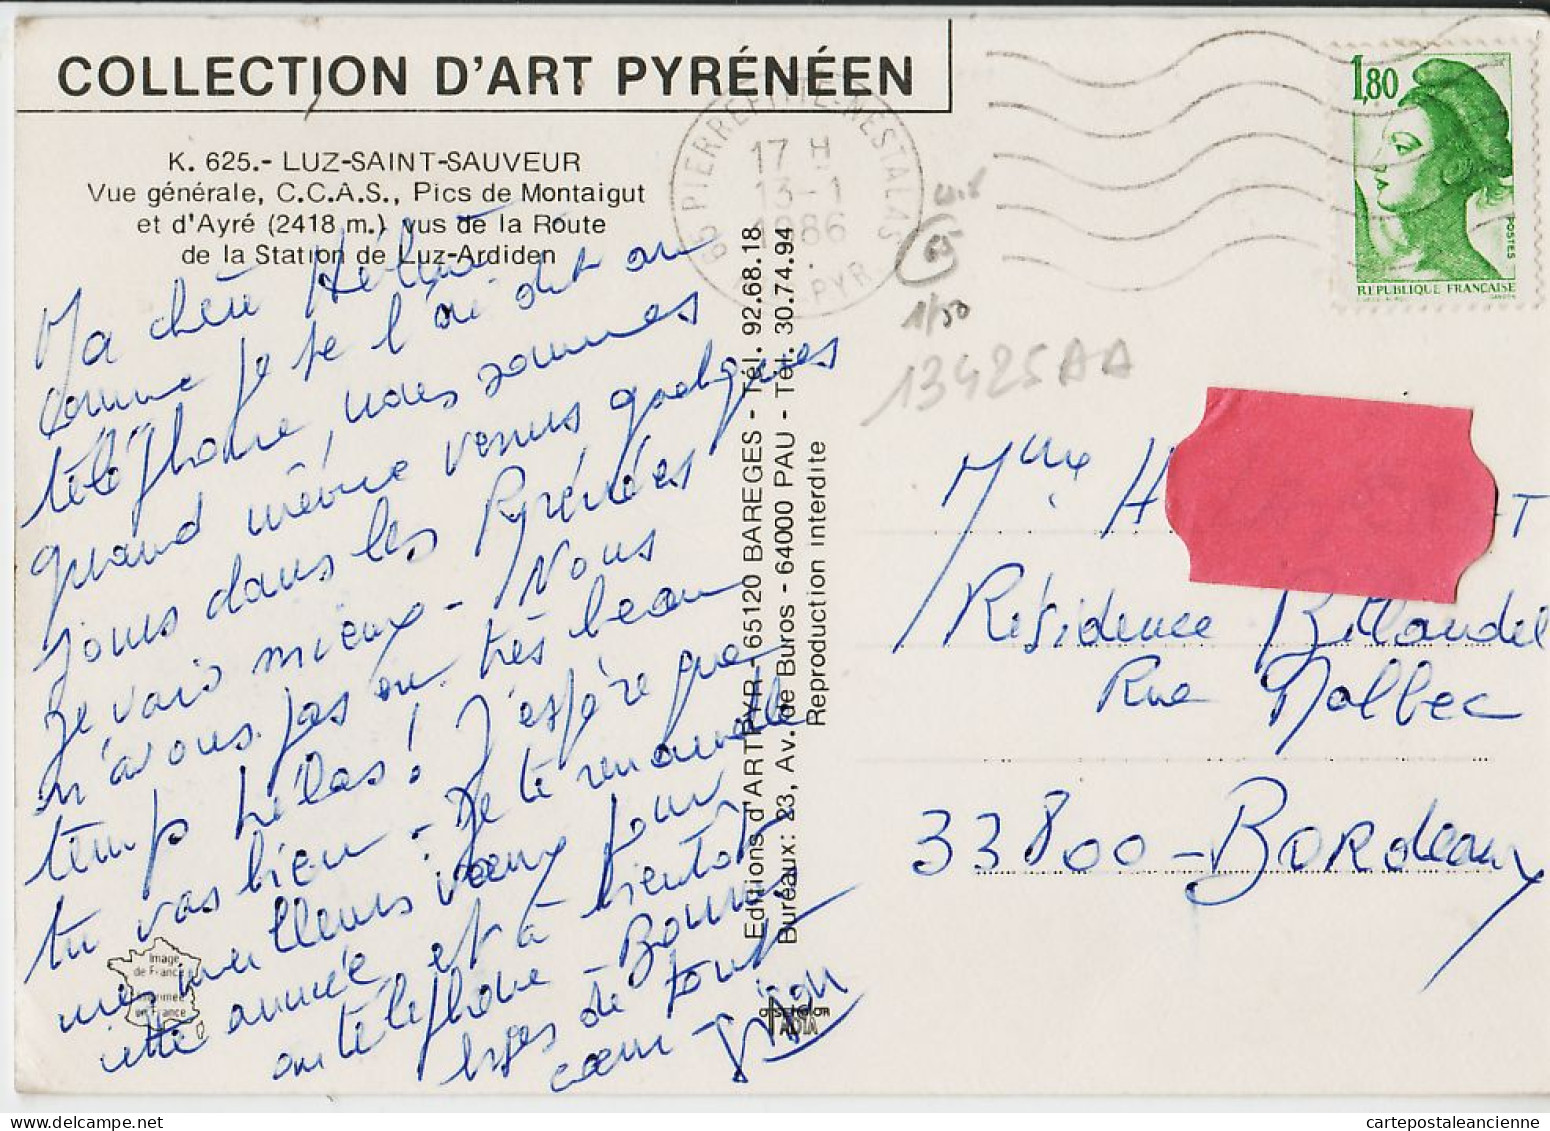 COLLECTION D'ART PYRÉNÉEN
K. 625.- LUZ-SAINT-SAUVEUR
Vue générale, C.C.A.S., Pics de Montaigut
et d'Ayré (2418 m.) vus de la Route
de la Station de Luz-Ardiden
Ma chère
comme je te l'ai dit au
téléphone, nous sommes
quand même venus quelques
jours dans les Pyrénées
Je vais mieux - Nous
n'avons pas eu très beau
temps hélas ! J'espère que
tu vas bien - Je te renouvelle
mes meilleurs vœux pour
cette année et à bientôt
au téléphone - Bonnes
bises de tout
cœur
Image
de France
Imprimée
en France
Editions d'ART PYR - 65120 BAREGES - Tél. 92.68.18
Bureaux: 23, Av. de Buros - 64000 PAU - Tél. 30.74.94
Reproduction interdite
65 PIERREFITTE-NESTALAS
17 H
13-1
1986
PYR
65
1/50
13425AA
1,80
POSTES
REPUBLIQUE FRANÇAISE
Mme H T
Résidence Billaudel
Rue Malbec
33800 - Bordeaux
cartepostaleancienne